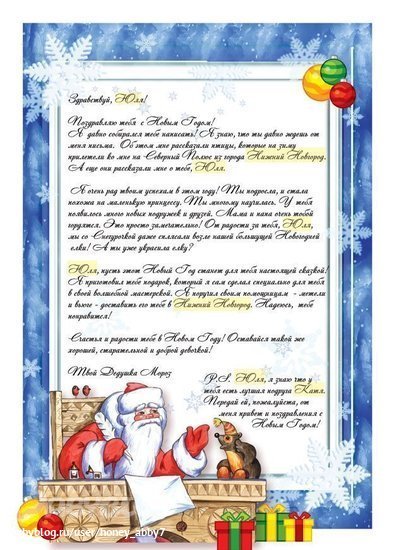 Здравствуй, Юля!
Поздравляю тебя с Новым Годом!
Я давно собирался тебе написать! Я знаю, что ты давно ждешь от
меня письма. Об этом мне рассказали птицы, которые на зиму
прилетели ко мне на Северный Полюс из города Нижний Новгород.
А еще они рассказали мне о тебе, Юля.
Я очень рад твоим успехам в этом году! Ты подросла, и стала
похожа на маленькую принцессу. Ты многому научилась. У тебя
появилось много новых подружек и друзей. Мама и папа очень тобой
гордятся. Это просто замечательно! От радости за тебя, Юля,
мы со Снегурочкой даже сплясали возле нашей большущей Новогодней
елки! А ты уже украсила елку?
Юля, пусть этот Новый Год станет для тебя настоящей сказкой!
Я приготовил тебе подарок, который я сам сделал специально для тебя
в своей волшебной мастерской. Я поручил своим помощницам - метели
и вьюге - доставить его тебе в Нижний Новгород. Надеюсь, тебе
понравится!
Счастья и радости тебе в Новом Году! Оставайся такой же
хорошей, старательной и доброй девочкой!
Твой Дедушка Мороз
P.S. Юля, я знаю что у
тебя есть лучшая подруга Катя.
Передай ей, пожалуйста, от
меня привет и поздравления с
Новым Годом!
byblog.ru/user/honey_abby7